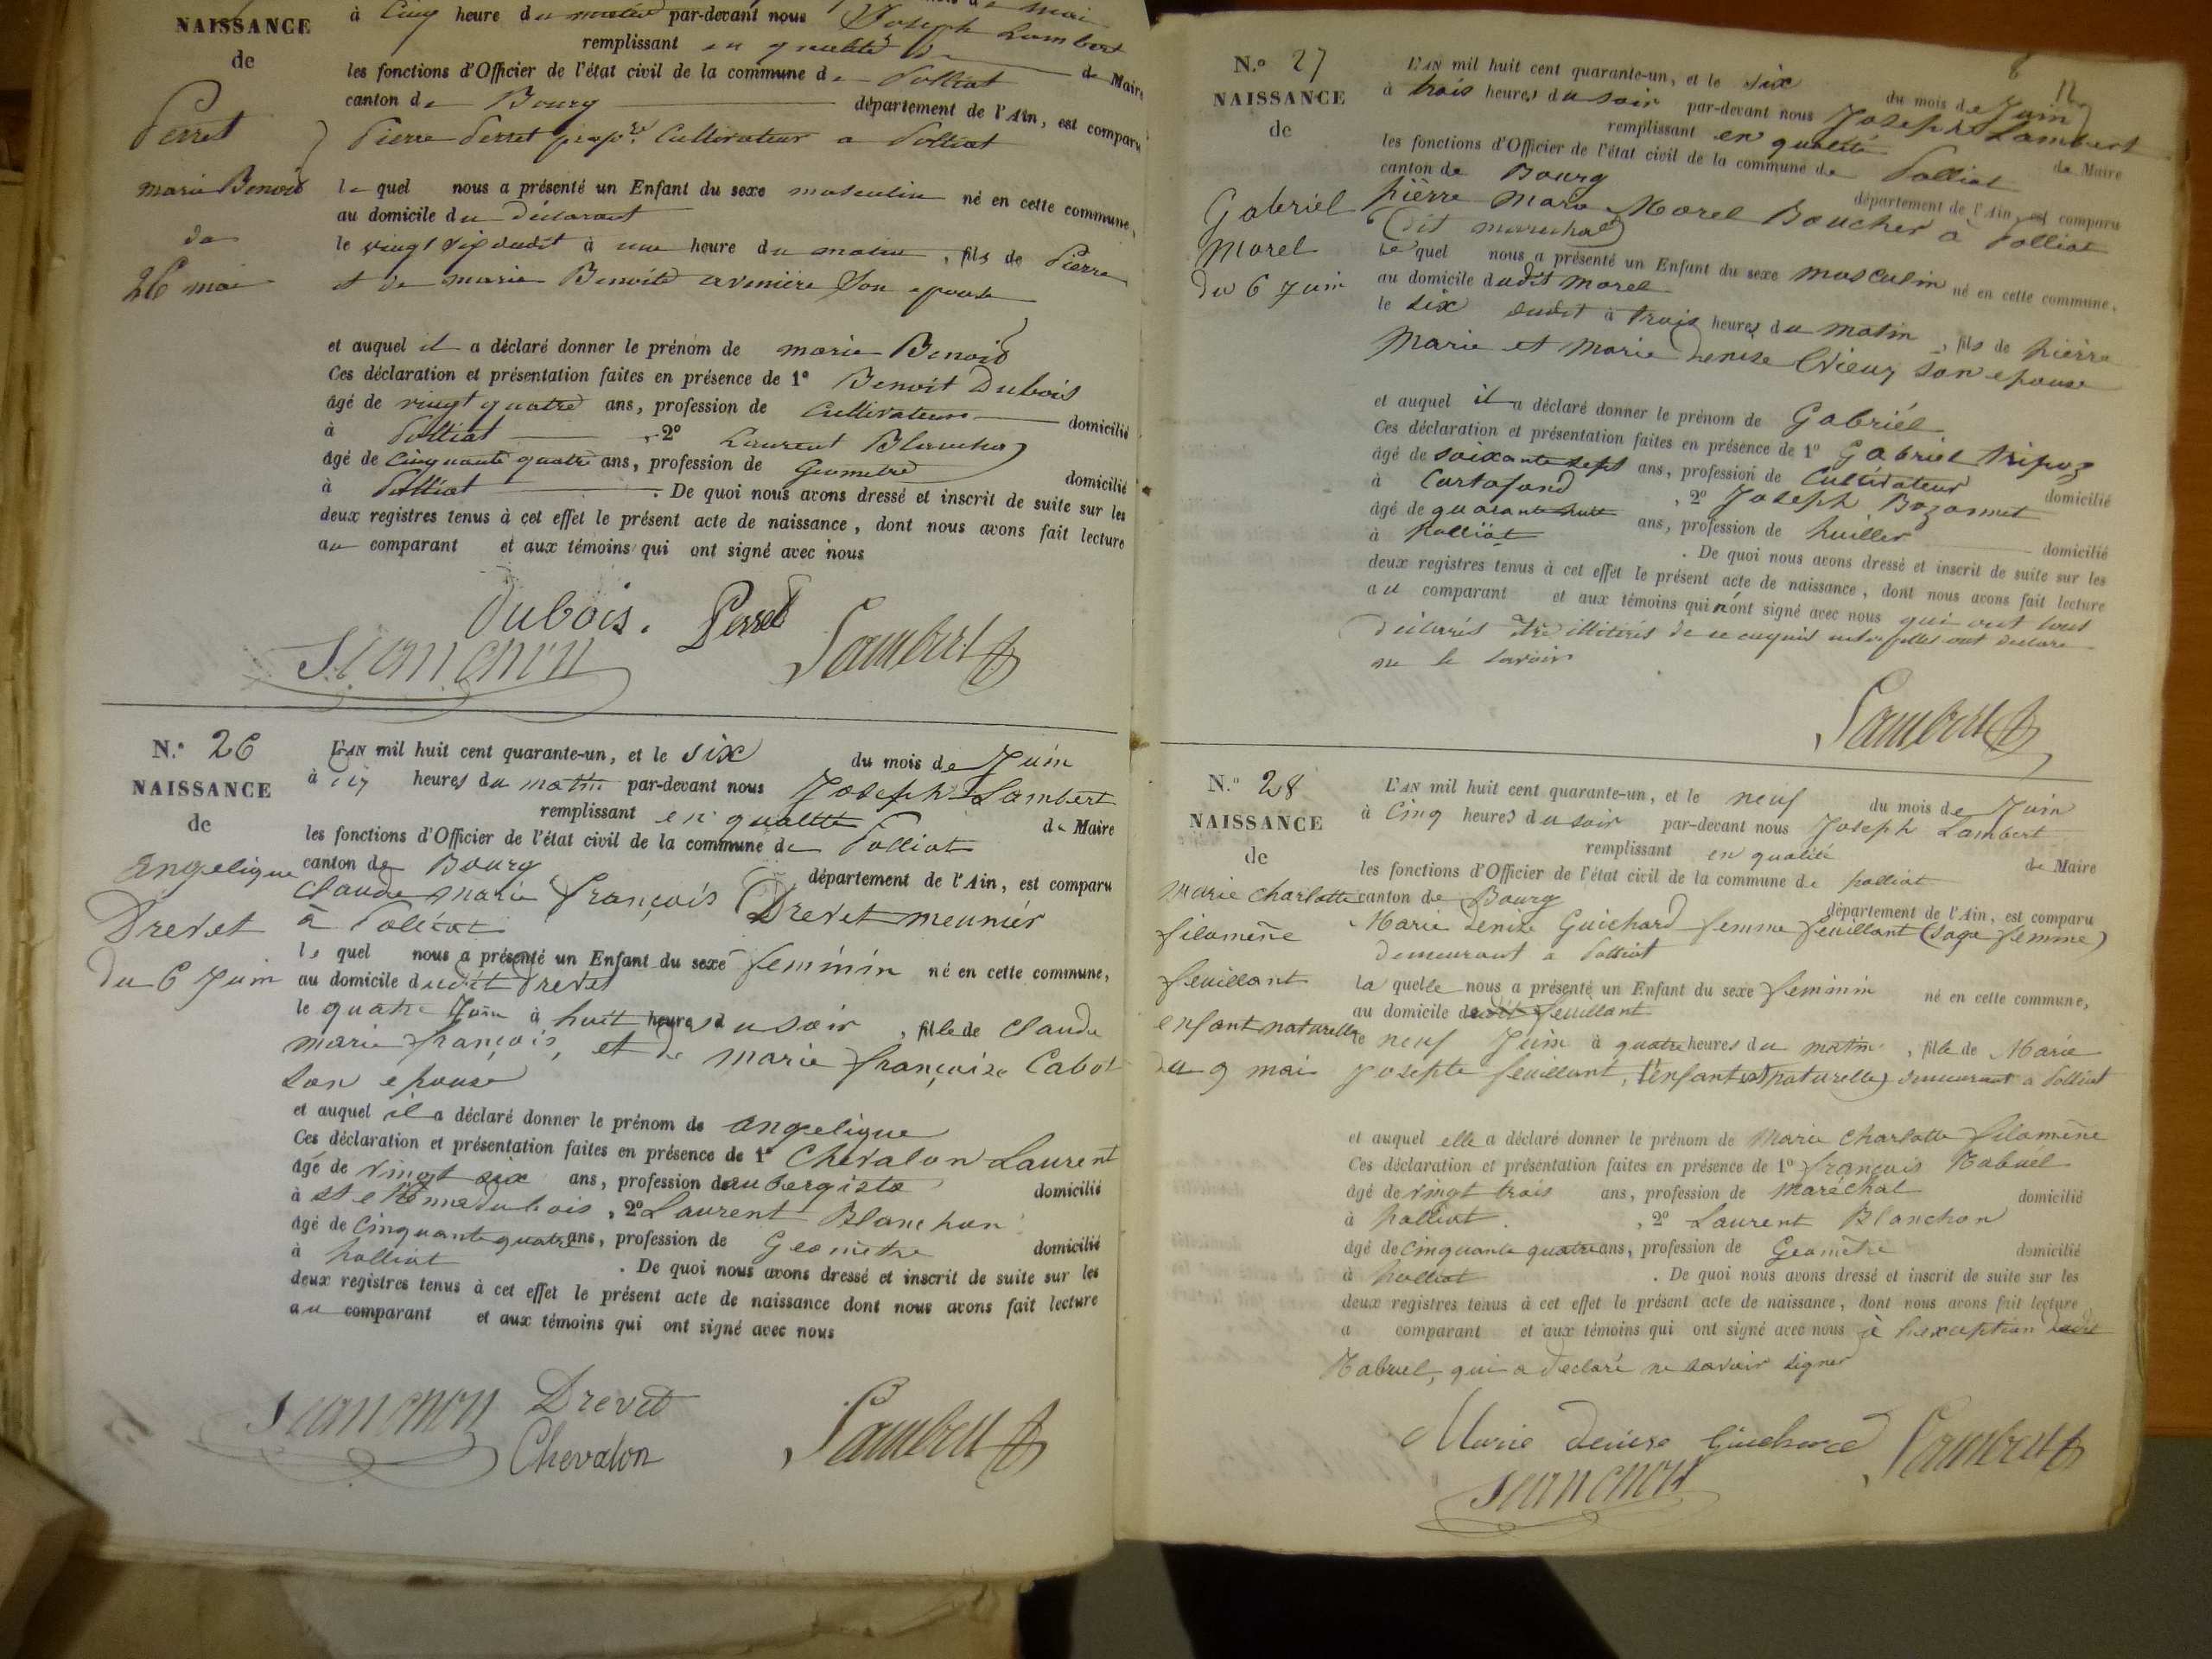 NAISSANCE
de
Perret
marie Benoit
du
26 mai
à Cinq heure du matin par-devant nous Joseph Lambert
remplissant en qualité de Maire
les fonctions d'Officier de l'état civil de la commune de Polliat
canton de Bourg département de l'Ain, est comparu
Pierre Perret prop.re Cultivateur a Polliat
le quel nous a présenté un Enfant du sexe masculin né en cette commune,
au domicile du déclarant
le vingt six dudit à une heure du matin, fils de Pierre
et de marie Benoite son epouse
et auquel il a déclaré donner le prénom de marie Benoit
Ces déclaration et présentation faites en présence de 1° Benoit Dubois
âgé de vingt quatre ans, profession de Cultivateur domicilié
à Polliat, 2° Laurent Blanchon
âgé de Cinquante quatre ans, profession de Geometre domicilié
à Polliat. De quoi nous avons dressé et inscrit de suite sur les
deux registres tenus à cet effet le présent acte de naissance, dont nous avons fait lecture
au comparant et aux témoins qui ont signé avec nous
Dubois. Perret
Lambert
N.° 26
NAISSANCE
de
Angelique
Drevet
du 6 Juin
L'AN mil huit cent quarante-un, et le six du mois de Juin
à dix heures du matin par-devant nous Joseph Lambert
remplissant en qualité de Maire
les fonctions d'Officier de l'état civil de la commune de Polliat
canton de Bourg département de l'Ain, est comparu
Claude Marie François Drevet meunier
à Polliat
le quel nous a présenté un Enfant du sexe feminin né en cette commune,
au domicile dudit Drevet
le quatre Juin à huit heures du soir, fille de Claude
marie françois, et de marie françoise Cabot
son épouse
et auquel il a déclaré donner le prénom de angelique
Ces déclaration et présentation faites en présence de 1° Chevalon Laurent
âgé de vingt six ans, profession d'aubergiste domicilié
à st etienne du bois, 2° Laurent Blanchon
âgé de Cinquante quatre ans, profession de Geometre domicilié
à polliat. De quoi nous avons dressé et inscrit de suite sur les
deux registres tenus à cet effet le présent acte de naissance dont nous avons fait lecture
au comparant et aux témoins qui ont signé avec nous
Drevet
Chevalon
Lambert
N.° 27
NAISSANCE
de
Gabriel
Morel
du 6 Juin
L'AN mil huit cent quarante-un, et le six du mois de Juin
à trois heures du soir par-devant nous Joseph Lambert
remplissant en qualité de Maire
les fonctions d'Officier de l'état civil de la commune de Polliat
canton de Bourg département de l'Ain, est comparu
pierre Marie Morel Boucher à Polliat
(dit marechal)
le quel nous a présenté un Enfant du sexe masculin né en cette commune,
au domicile dudit morel
le six dudit à trois heures du matin, fils de pierre
Marie et marie denise Vieux son epouse
et auquel il a déclaré donner le prénom de Gabriel
Ces déclaration et présentation faites en présence de 1° Gabriel tripoz
âgé de soixante sept ans, profession de Cultivateur domicilié
à Curtafond, 2° Joseph Bozonnet
âgé de quarante huit ans, profession de huillier domicilié
à polliat. De quoi nous avons dressé et inscrit de suite sur les
deux registres tenus à cet effet le présent acte de naissance, dont nous avons fait lecture
au comparant et aux témoins qui n'ont signé avec nous qui ont tous
declarés être illitérés de ce enquis ont declaré
ne le savoir
Lambert
N.° 28
NAISSANCE
de
Marie Charlotte
filomène
feuillant
enfant naturelle
du 9 mai
L'AN mil huit cent quarante-un, et le neuf du mois de Juin
à Cinq heures du soir par-devant nous Joseph Lambert
remplissant en qualité de Maire
les fonctions d'Officier de l'état civil de la commune de polliat
canton de Bourg département de l'Ain, est comparu
Marie denise Guichard femme feuillant (sage femme)
demeurant a Polliat
la quelle nous a présenté un Enfant du sexe feminin né en cette commune,
au domicile dudit feuillant
le neuf Juin à quatre heures du matin, fille de Marie
Josephte feuillant, (l'enfant est naturelle) demeurant a Polliat
et auquel elle a déclaré donner le prénom de Marie Charlotte filomène
Ces déclaration et présentation faites en présence de 1° françois Rabuel
âgé de vingt trois ans, profession de maréchal domicilié
à polliat. , 2° Laurent Blanchon
âgé de cinquante quatre ans, profession de Geometre domicilié
à polliat. De quoi nous avons dressé et inscrit de suite sur les
deux registres tenus à cet effet le présent acte de naissance, dont nous avons fait lecture
a comparant et aux témoins qui ont signé avec nous à l'exception dudit
Rabuel, qui a declaré ne savoir signer
Marie denise Guichard
Lambert